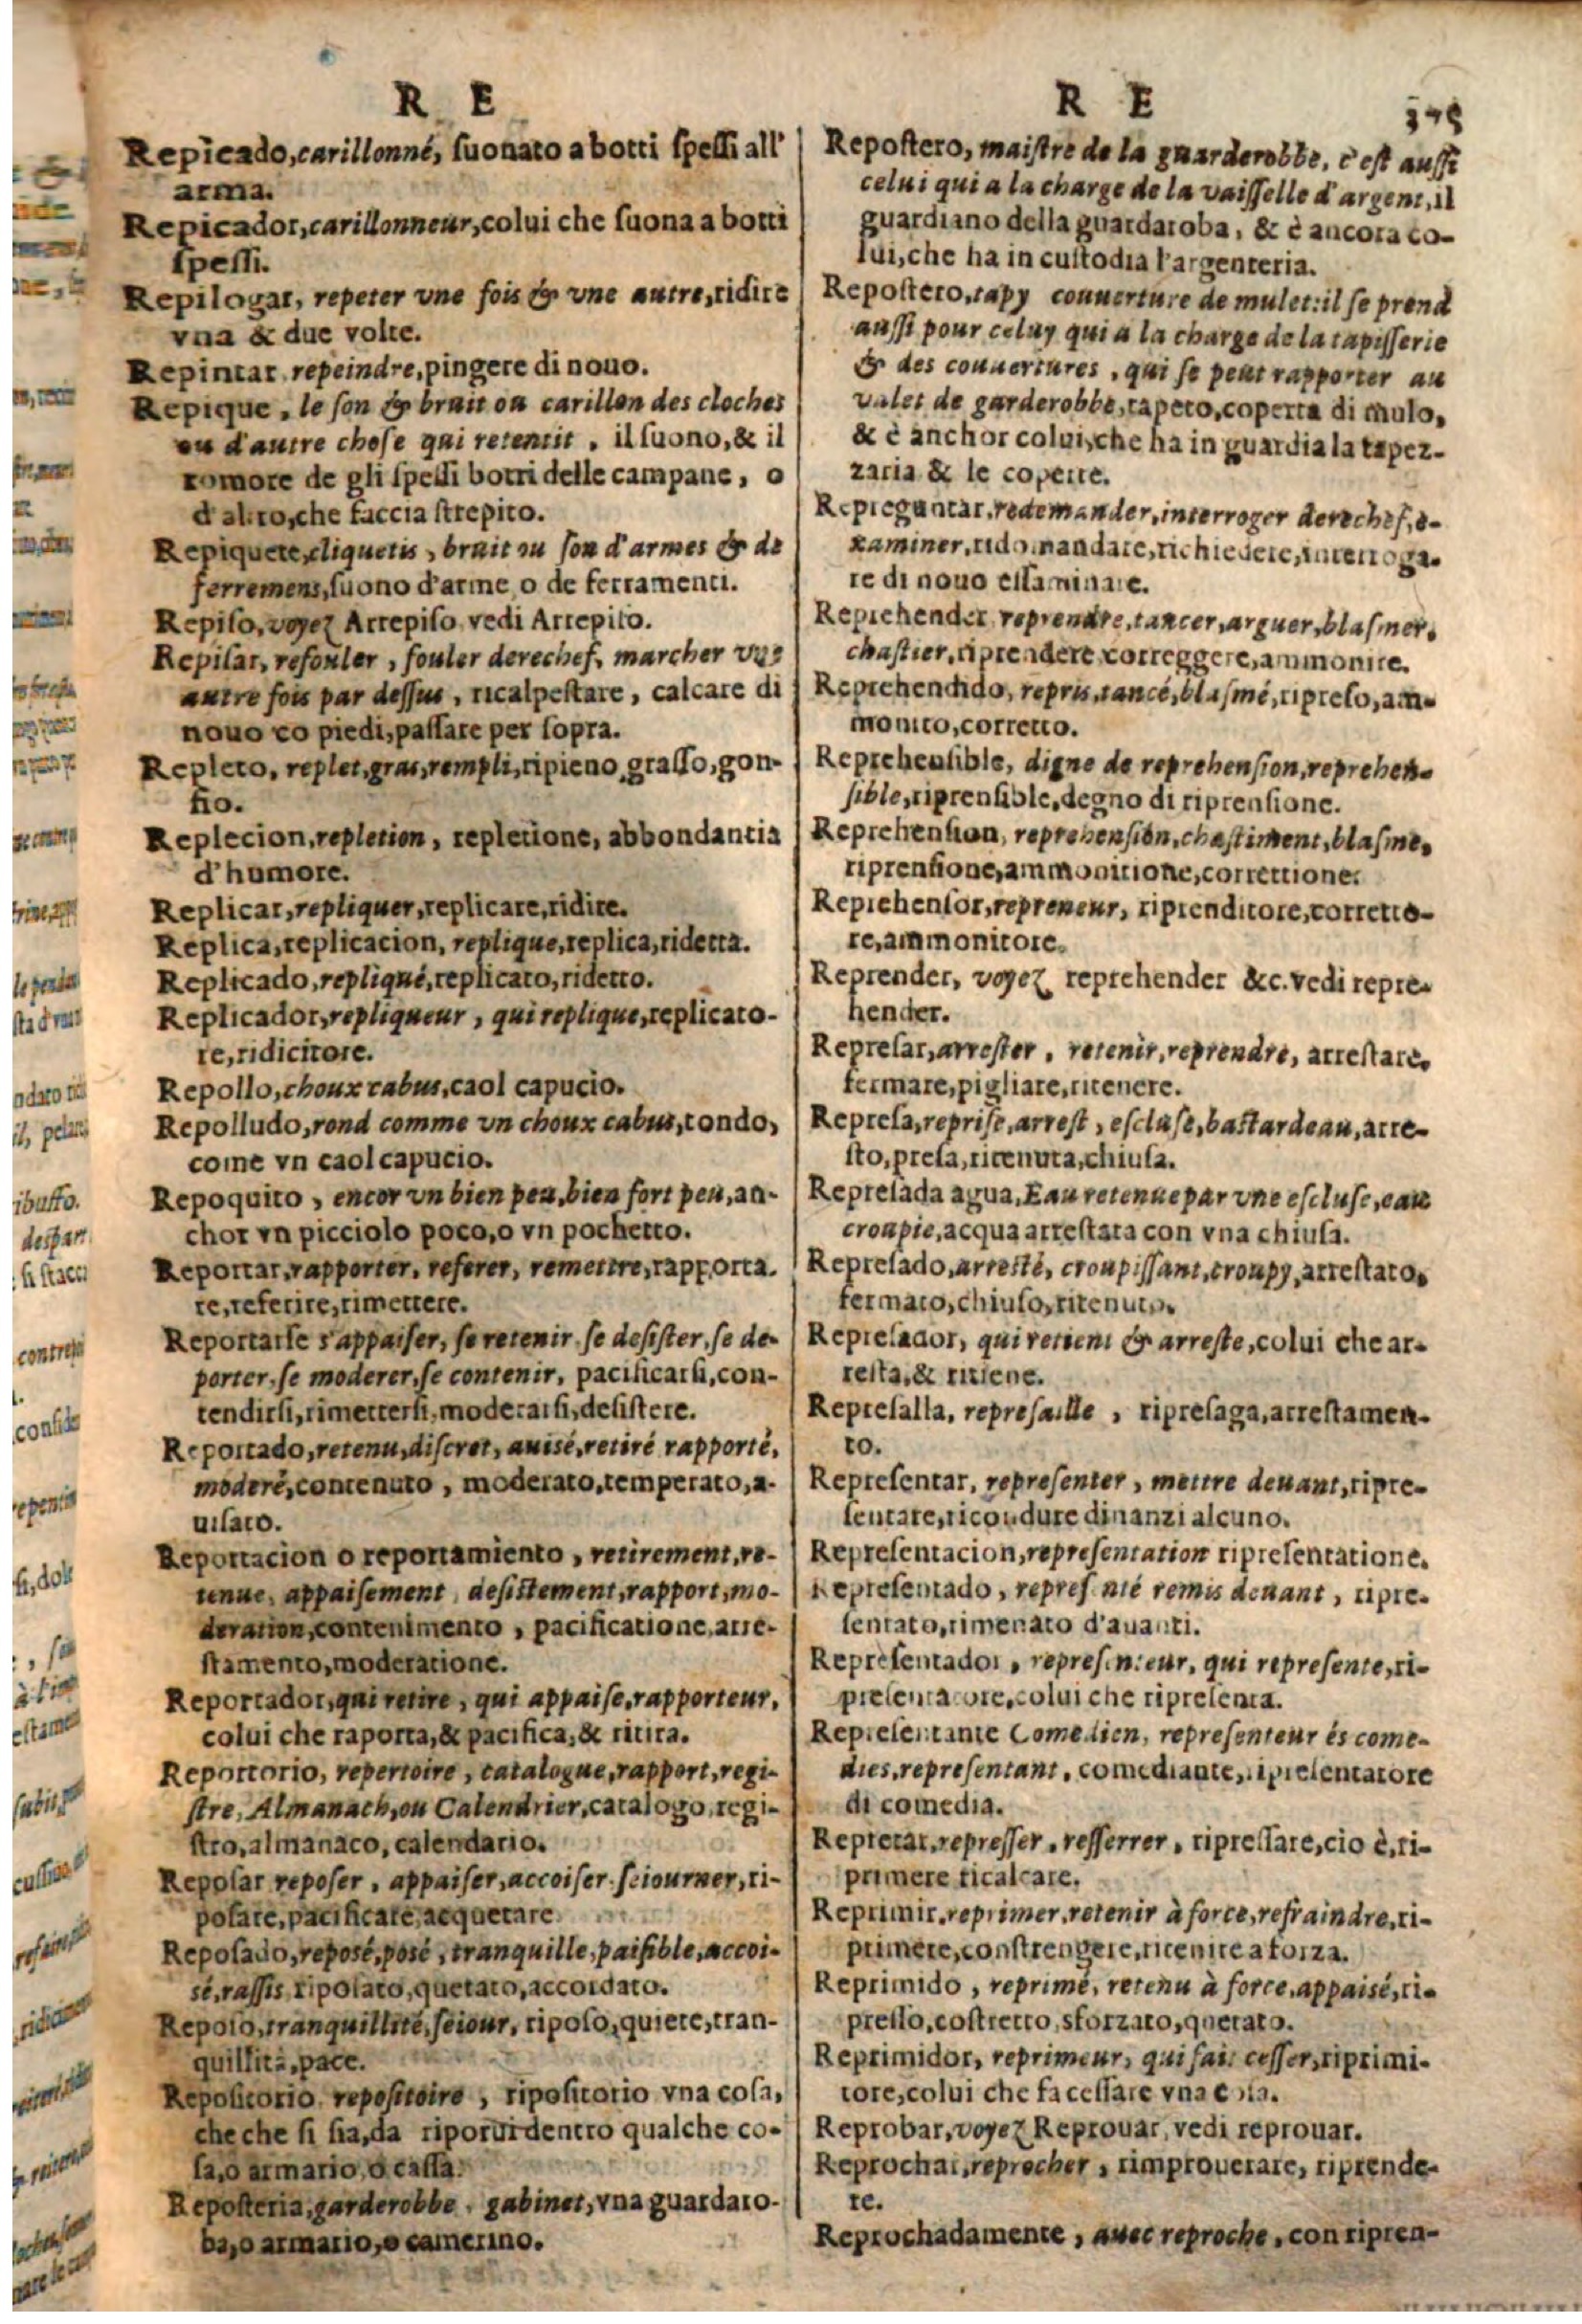 R E
Repicado, carillonné, ſuonato a botti ſpeſſi all'
arma.
Repicador, carillonneur, colui che ſuona a botti
ſpeſſi.
Repilogar, repeter vne fois & vne autre, ridire
vna & due volte.
Repintar repeindre, pingere di nouo.
Repique, le ſon & bruit ou carillon des cloches
ou d'autre choſe qui retentit, il ſuono, & il
romore de gli ſpeſſi botti delle campane, o
d'altro, che faccia ſtrepito.
Repiquete, cliquetis, bruit ou ſon d'armes & de
ferremens, ſuono d'arme o de ferramenti.
Repiſo, voyez Arrepiſo vedi Arrepiſo.
Repiſar, refouler, fouler derechef, marcher vne
autre fois par deſſus, ricalpeſtare, calcare di
nouo co piedi, paſſare per ſopra.
Repleto, replet, gras, rempli, ripieno graſſo, gon-
fio.
Replecion, repletion, repletione, abbondantia
d'humore.
Replicar, repliquer, replicare, ridire.
Replica, replicacion, replique, replica, ridetta.
Replicado, repliqué, replicato, ridetto.
Replicador, repliqueur, qui replique, replicato-
re, ridicitore.
Repollo, choux cabus, caol capucio.
Repolludo, rond comme vn choux cabus, tondo,
come vn caol capucio.
Repoquito, encor vn bien peu, bien fort peu, an-
chor vn picciolo poco, o vn pochetto.
Reportar, rapporter, referer, remettre, rapporta-
re, referire, rimettere.
Reportarſe s'appaiſer, ſe retenir ſe deſiſter, ſe de-
porter, ſe moderer, ſe contenir, pacificarſi, con-
tendirſi, rimetterſi, moderarſi, deſiſtere.
Reportado, retenu, diſcret, auisé, retiré rapporté,
moderé, contenuto, moderato, temperato, a-
uiſato.
Reportacion o reportamiento, retirement, re-
tenue, appaiſement, deſiſtement, rapport, mo-
deration, contenimento, pacificatione, arre-
ſtamento, moderatione.
Reportador, qui retire, qui appaiſe, rapporteur,
colui che raporta, & pacifica, & ritira.
Reportorio, repertoire, catalogue, rapport, regi-
ſtre, Almanach, ou Calendrier, catalogo, regi-
ſtro, almanaco, calendario.
Repoſar repoſer, appaiſer, accoiſer ſeiourner, ri-
poſare, pacificare, acquetare
Repoſado, repoſé, posé, tranquille, paiſible, accoi-
sé, raſſis ripoſato, quetato, accordato.
Repoſo, tranquillité, ſeiour, ripoſo, quiete, tran-
quillità, pace.
Repoſitorio repoſitoire, ripoſitorio vna coſa,
che che ſi ſia, da riporui dentro qualche co-
ſa, o armario, o caſſa.
Repoſteria, garderobbe, gabinet, vna guardaro-
ba, o armario, o camerino.
R E 375
Repoſtero, maiſtre de la guarderobbe, c'eſt auſſi
celui qui a la charge de la vaiſſelle d'argent, il
guardiano della guardaroba, & è ancora co-
lui, che ha in cuſtodia l'argenteria.
Repoſtero, tapy couuerture de mulet: il ſe prend
auſſi pour celuy qui a la charge de la tapiſſerie
& des couuertures, qui ſe peut rapporter au
valet de garderobbe, tapeto, coperta di mulo,
& è anchor colui, che ha in guardia la tapez-
zaria & le coperte.
Repreguntar, redemander, interroger derechef, e-
xaminer, ridomandare, richiedere, interroga-
re di nouo eſſaminare.
Reprehender reprendre, tancer, arguer, blaſmer,
chaſtier, riprendere correggere, ammonire.
Reprehendido, repris, tancé, blaſmé, ripreſo, am-
monito, corretto.
Reprehenſible, digne de reprehenſion, reprehen-
ſible, riprenſible, degno di riprenſione.
Reprehenſion, reprehenſion, chaſtiment, blaſme,
riprenſione, ammonitione, correttione.
Reprehenſor, repreneur, riprenditore, corretto-
re, ammonitore.
Reprender, voyez reprehender &c. vedi repre-
hender.
Repreſar, arreſter, retenir, reprendre, arreſtare,
fermare, pigliare, ritenere.
Repreſa, repriſe, arreſt, eſcluſe, baſtardeau, arre-
ſto, preſa, ritenuta, chiuſa.
Repreſada agua, Eau retenue par vne eſcluſe, eau
croupie, acqua arreſtata con vna chiuſa.
Repreſado, arreſté, croupiſſant, croupy, arreſtato,
fermato, chiuſo, ritenuto.
Repreſador, qui retient & arreſte, colui che ar-
reſta, & ritiene.
Repreſalla, repreſaille, ripreſaga, arreſtamen-
to.
Repreſentar, repreſenter, mettre deuant, ripre-
ſentare, ricondure dinanzi alcuno.
Repreſentacion, repreſentation ripreſentatione.
Repreſentado, repreſenté remis deuant, ripre-
ſentato, rimenato d'auanti.
Repreſentador, repreſenteur, qui repreſente, ri-
preſentatore, colui che ripreſenta.
Repreſentante Comedien, repreſenteur és come-
dies, repreſentant, comediante, ripreſentatore
di comedia.
Repretar, repreſſer, reſſerrer, ripreſſare, cio è, ri-
primere ricalcare.
Reprimir, reprimer, retenir à force, refraindre, ri-
primere, conſtrengere, ritenire a forza.
Reprimido, reprimé, retenu à force, appaisé, ri-
preſſo, coſtretto, sforzato, quetato.
Reprimidor, reprimeur, qui fait ceſſer, riprimi-
tore, colui che fa ceſſare vna coſa.
Reprobar, voyez Reprouar, vedi reprouar.
Reprochar, reprocher, rimprouerare, riprende-
re.
Reprochadamente, auec reproche, con ripren-